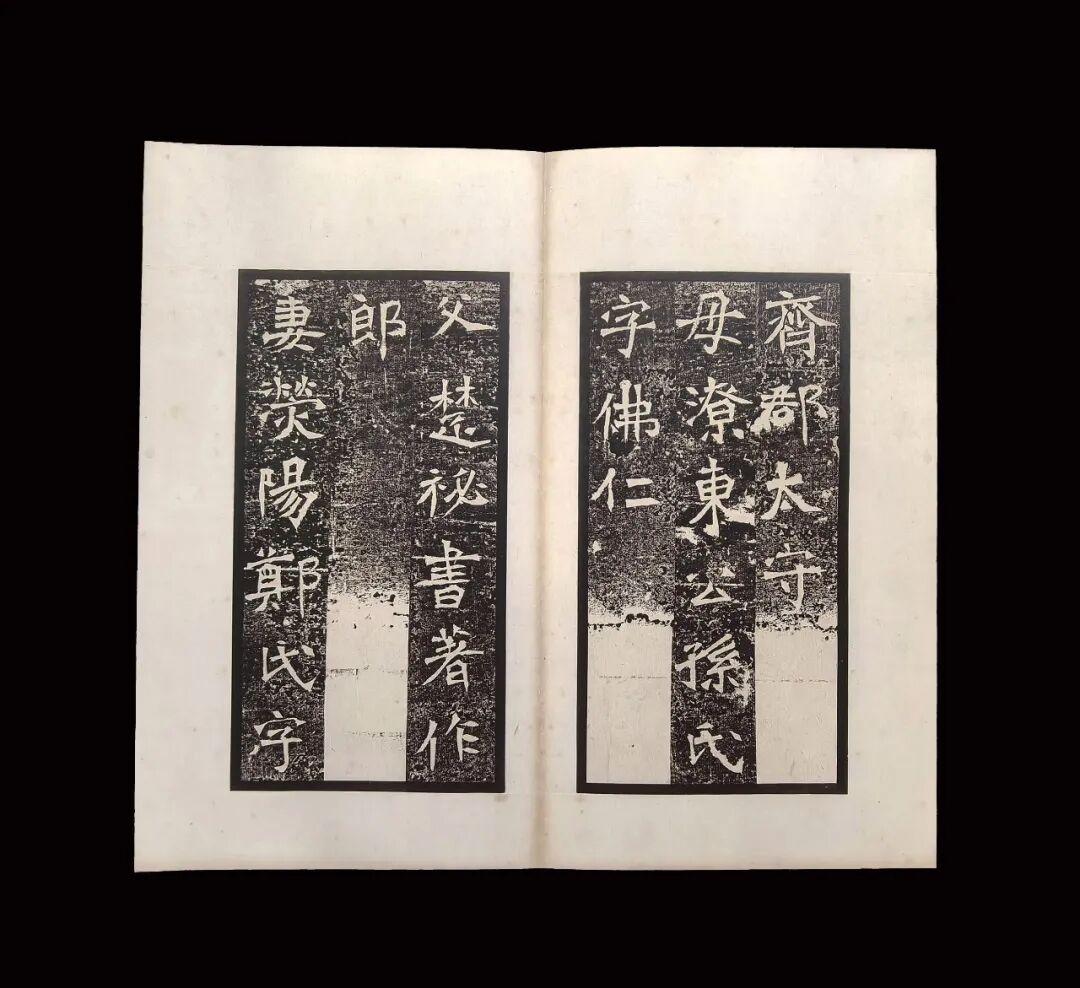 齊郡太守
母潦東公孫氏
字佛仁
父楚祕書著作
郎
妻熒陽鄭氏字